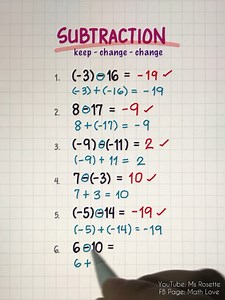 SUBTRACTION
keep - change - change
1. (-3)⊖16 = -19 ✓
(-3)+(-16) = -19
2. 8⊖17 = -9 ✓
8+(-17) = -9
3. (-9)⊖(-11) = 2 ✓
(-9)+11 = 2
4. 7⊖(-3) = 10 ✓
7+3 = 10
5. (-5)⊖14 = -19 ✓
(-5)+(-14) = -19
6. 6⊖10 =
6+
YouTube: Ms Rosette
FB Page: Math Love